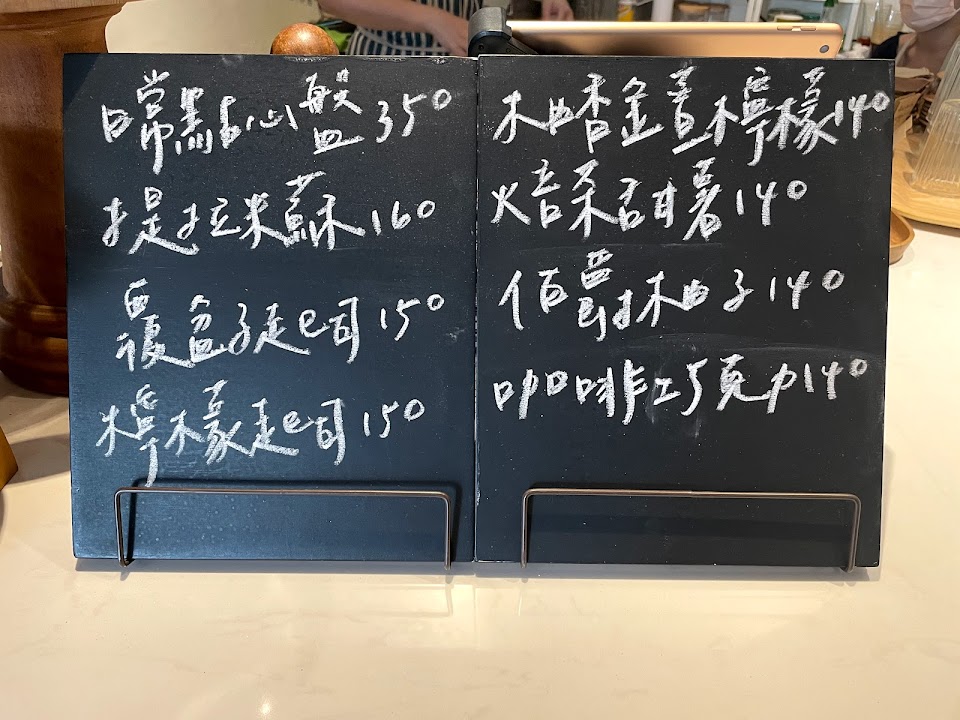 日常點心盤 350
提拉米蘇 160
覆盆子起司 150
檸檬起司 150
柚香金萱檸檬 140
焙茶甜薯 140
伯爵柚子 140
咖啡巧克力 140